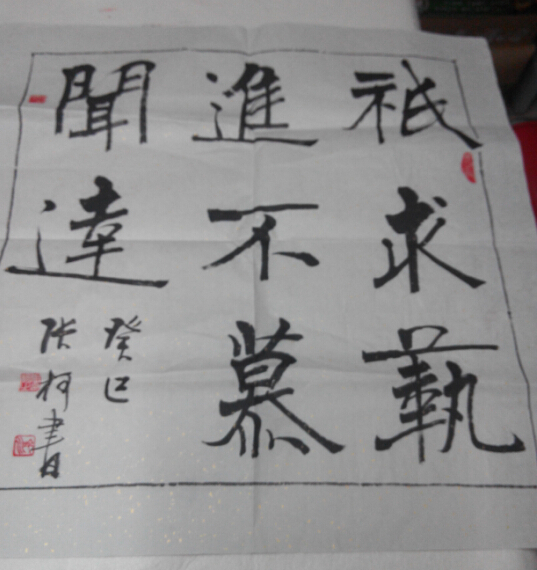 祇求蓺
進不慕
聞達
癸巳
张柯書